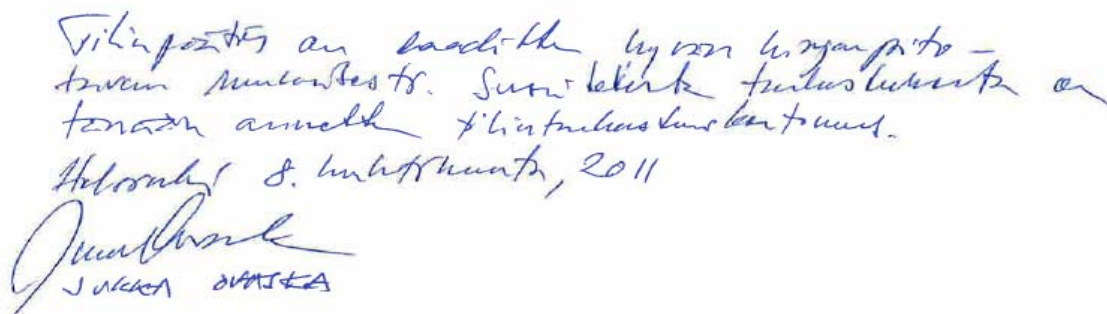 Tilinpäätös on laadittu hyvän kirjanpito-
tavan mukaisesti. Suoritetusta tarkastuksesta on
tänään annettu tilintarkastuskertomus.
Helsinki 8. huhtikuuta, 2011
JUKKA OVASKA